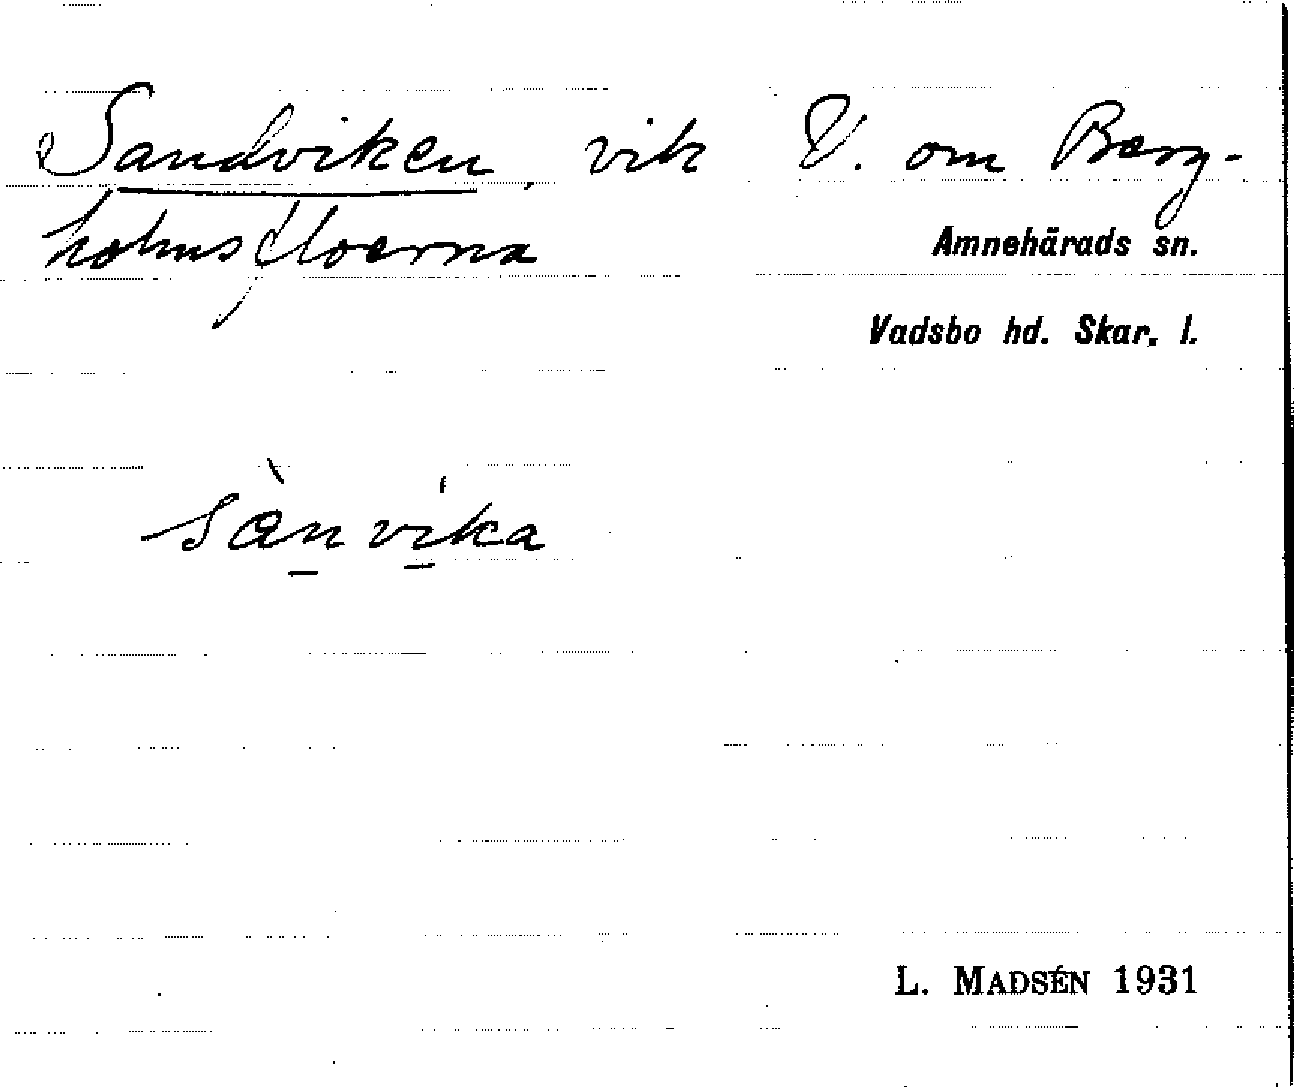 Sandviken, vik V. om Berg-
holmsfloerna
Amnehärads sn.
Vadsbo hd. Skar. l.
sànvíka
L. MADSÉN 1931